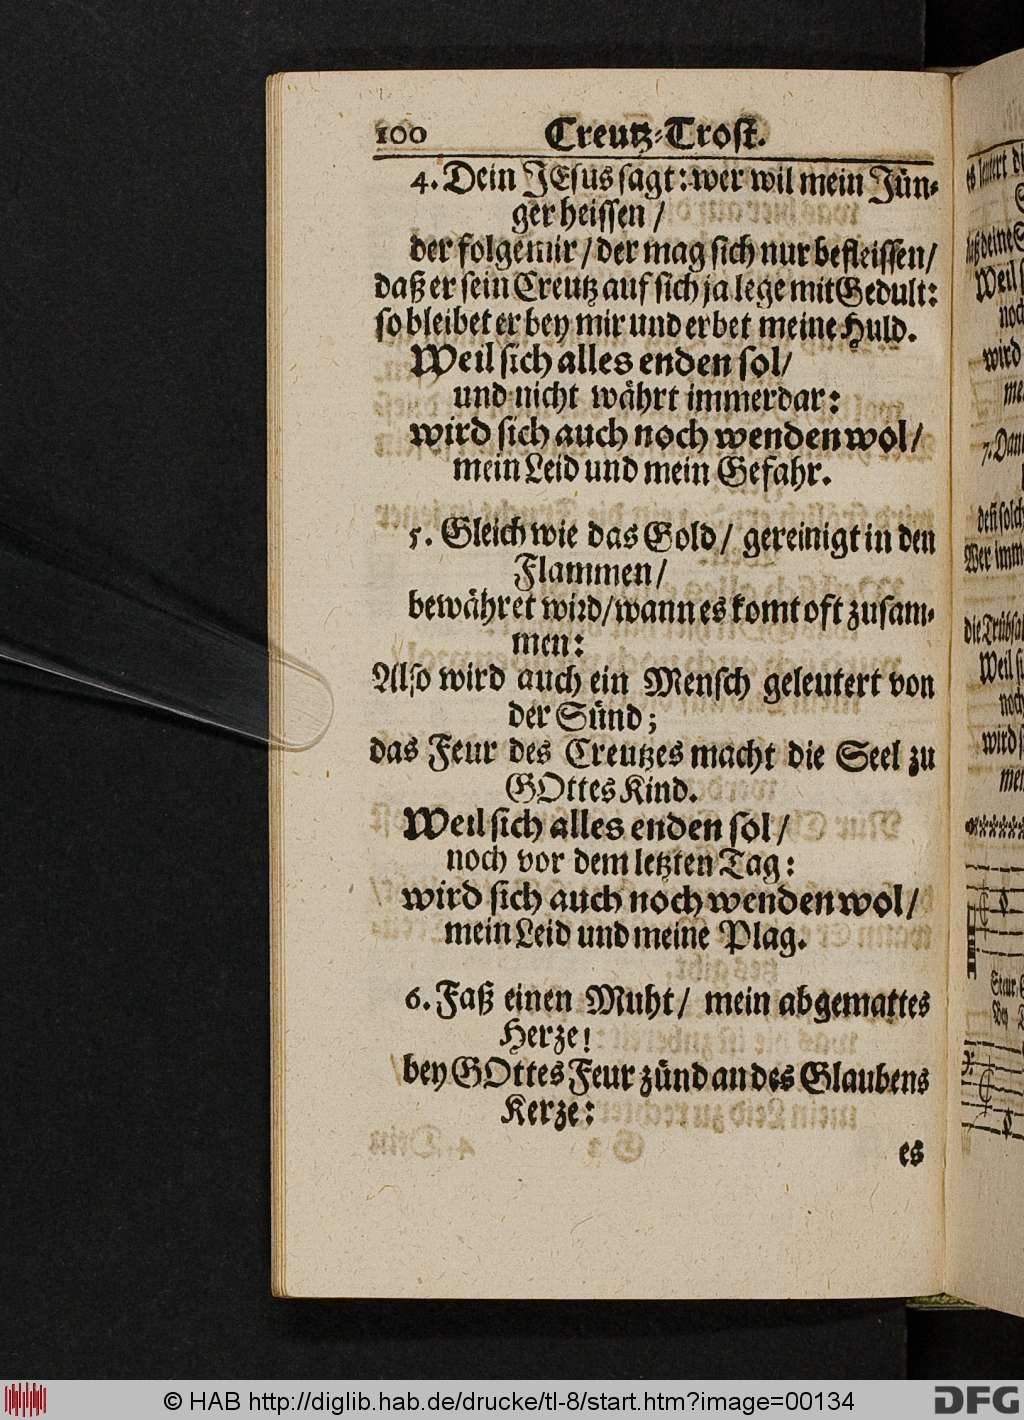 100 Creutz-Trost.
4. Dein JEsus sagt: wer wil mein Jün-
ger heissen /
der folge mir / der mag sich nur befleissen /
daß er sein Creutz auf sich ja lege mit Gedult:
so bleibet er bey mir und erbet meine Huld.
Weil sich alles enden sol /
und nicht währt immerdar:
wird sich auch noch wenden wol /
mein Leid und mein Gefahr.
5. Gleich wie das Gold / gereinigt in den
Flammen /
bewähret wird / wann es komt oft zusam-
men:
Also wird auch ein Mensch geleutert von
der Sünd;
das Feur des Creutzes macht die Seel zu
GOttes Kind.
Weil sich alles enden sol /
noch vor dem letzten Tag:
wird sich auch noch wenden wol /
mein Leid und meine Plag.
6. Faß einen Muht / mein abgemattes
Herze!
bey GOttes Feur zünd an des Glaubens
Kerze:
es
© HAB http://diglib.hab.de/drucke/tl-8/start.htm?image=00134
DFG